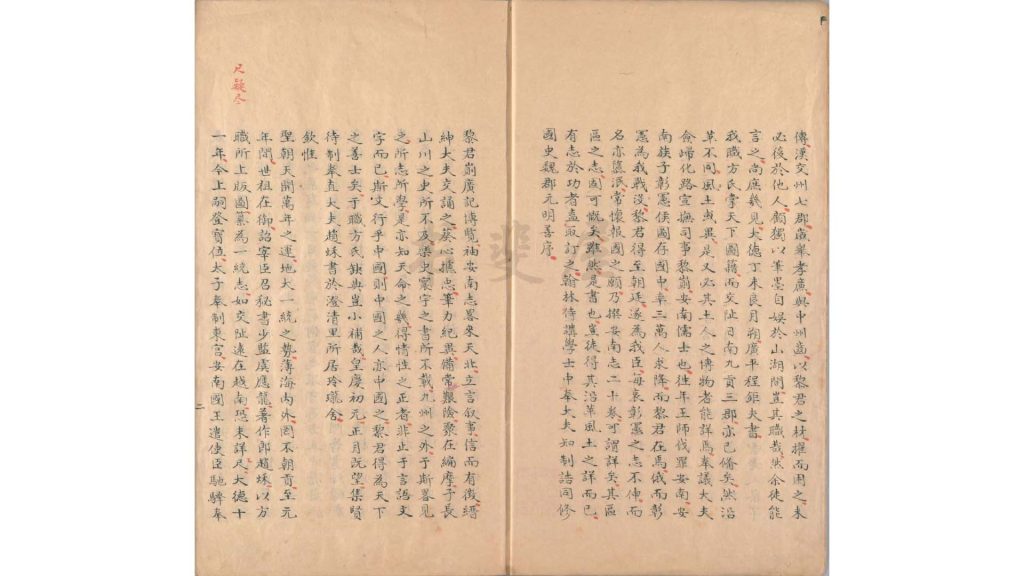 傳漢交州七郡歲舉孝廉與中州齒以黎君之材擢而用之未
必後於他人顧獨以筆墨自娛於山湖間豈其職哉然余徒能
言之尚庶幾見大德丁未良月朔廣平程鉅夫書
我職方氏掌天下圖籍而交阯日南九真三郡亦已備矣然沿
革不同風土或異是又必其土人之博物者能詳焉奉議大夫
僉歸化路宣撫司事黎崱安南儒士也往年王師伐罪安南安
南族子彰憲侯國存國中率三萬人求降而黎君在焉俄而彰
憲為我戰沒黎君得至朝廷遂為我臣每哀彰憲之志不伸而
名亦隳泯常懷報國之願乃撰安南志二十卷可謂詳矣其區
區之志固可慨矣雖然是書也豈徒得其沿革風土之詳而已
有志於功者盍取訂之翰林待講學士中奉大夫知制誥同修
國史魏郡元明善序
黎君崱廣記博覽袖安南志畧來天北立言叙事信而有徵縉
紳大夫交誦之葵心攄忠筆力紀異備常艱險聚在編摩子長
山川之史所不及梁史寰宇之書所不載九州之外于斯畧見
之所志所學是亦知天命之幾得情性之正者非止于言語文
字而已斯文行乎中國則中國之人亦中國之黎君得為天下
之善士矣于職方氏缺典豈小補哉皇慶初元正月既望集賢
待制奉直大夫趙秌書於澄清里所居玲瓏舍
欽惟
聖朝天開萬年之運地大一統之勢薄海內外罔不朝貢至元
年間世祖在御詔宰臣召秘書少監虞應龍著作郎趙秌以方
職所上版圖纂為一統志如交阯遠在越南恐未詳尺大德十
一年今上嗣登寶位太子奉制東宮安南國王遣使臣馳驛奉
尺疑冬
二